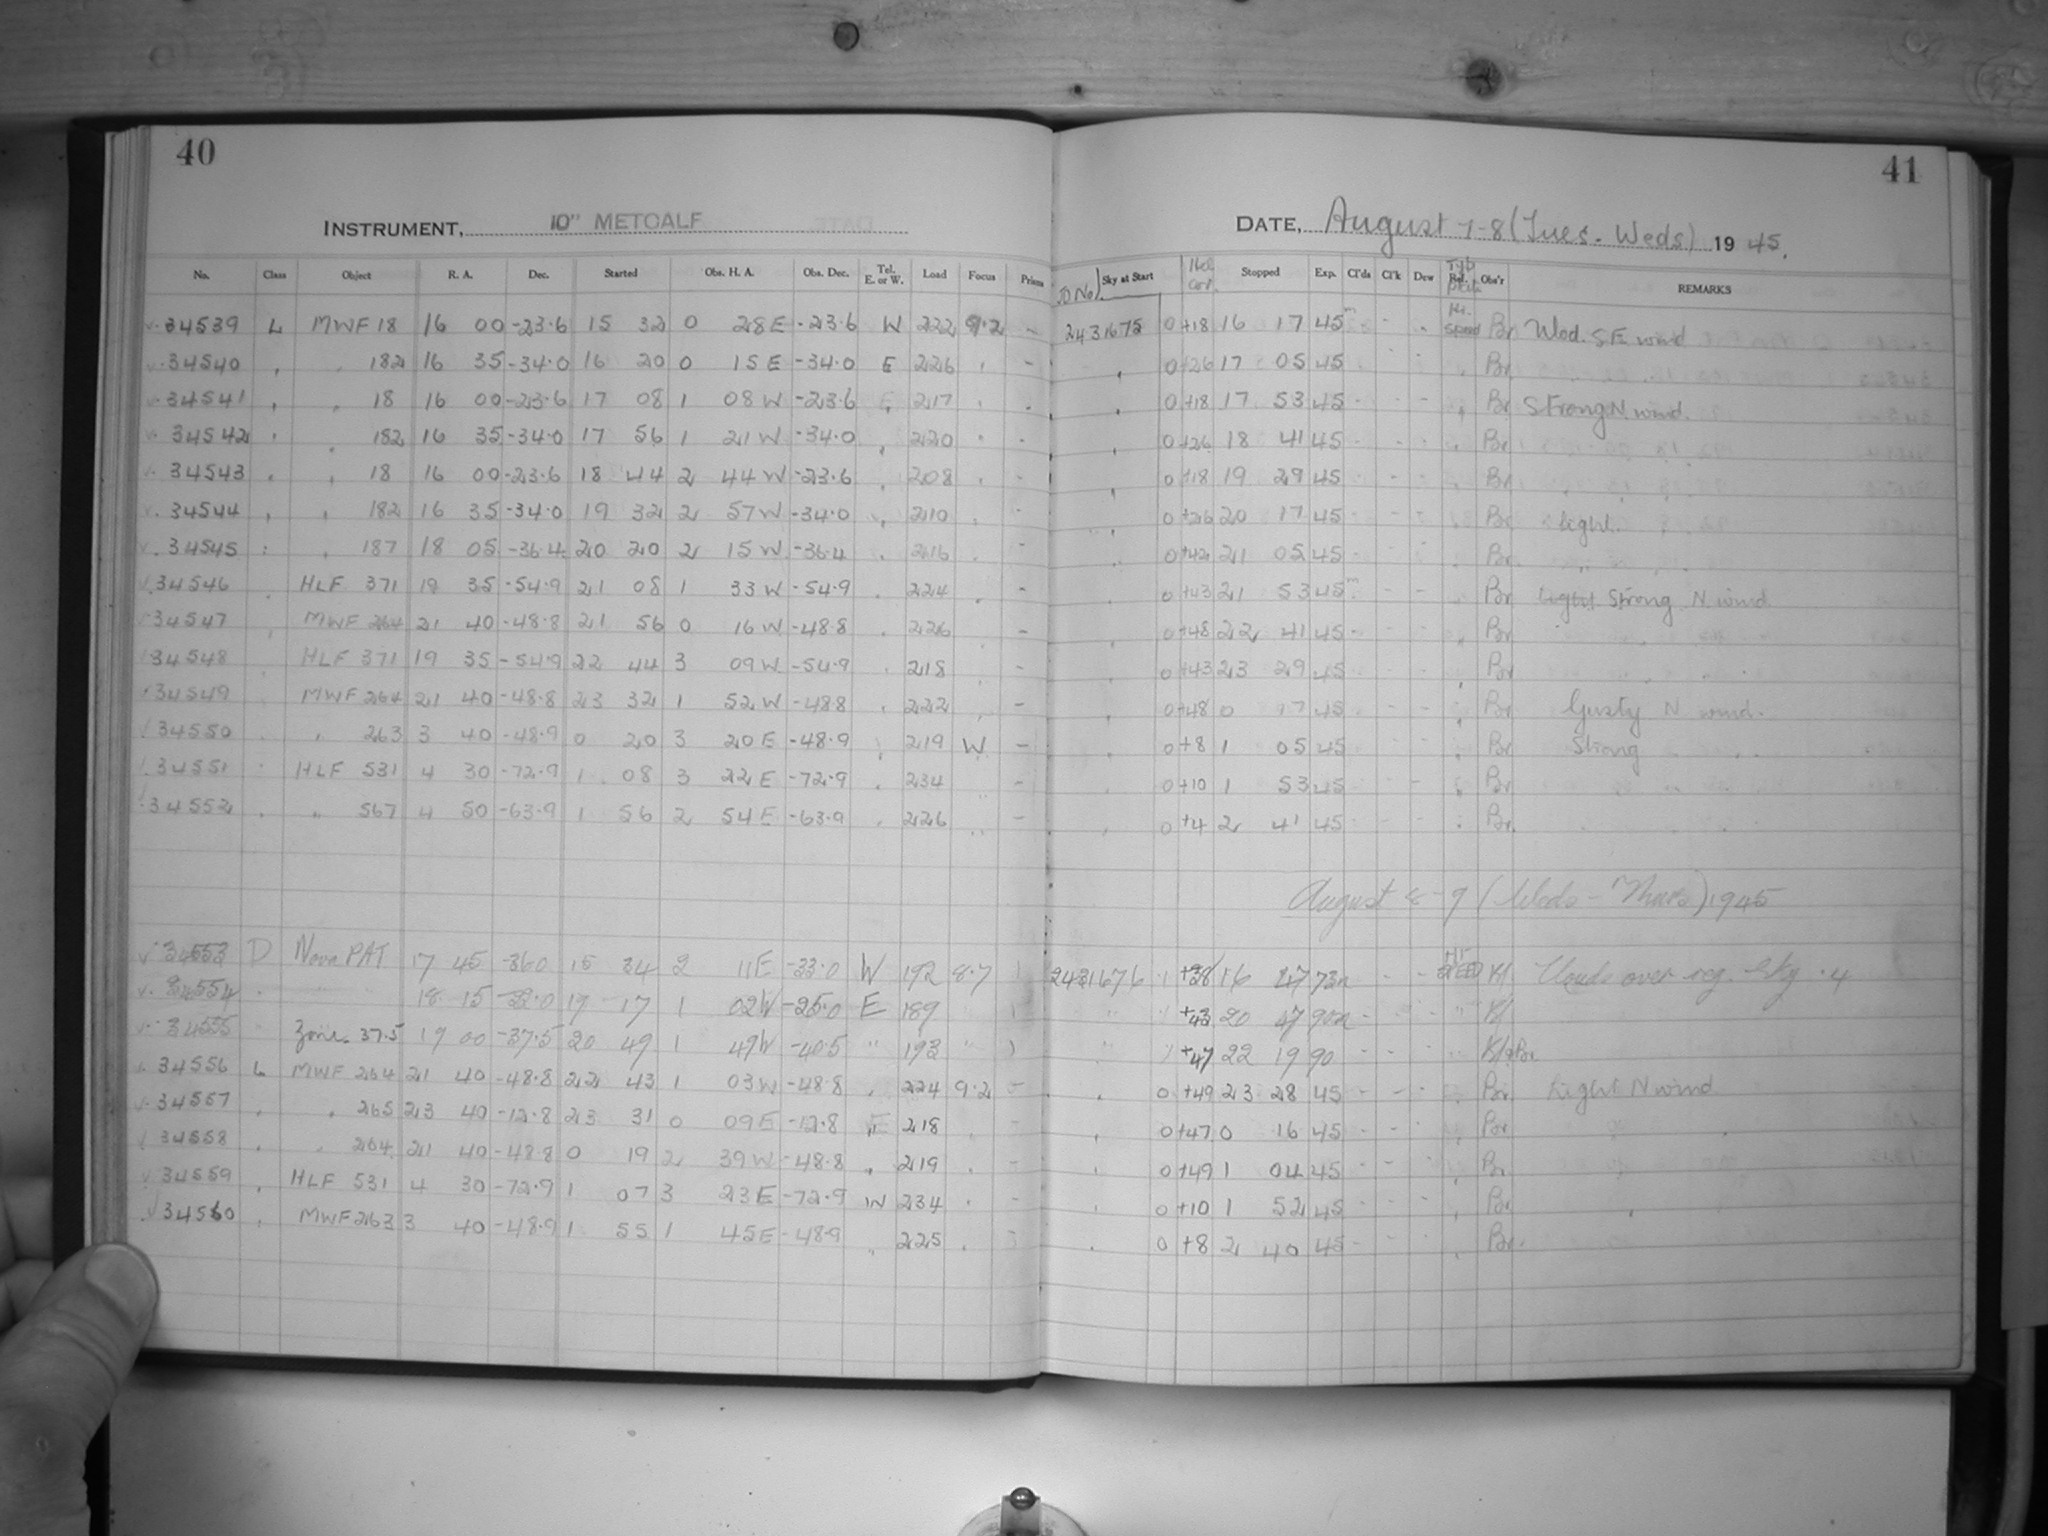 40
41
INSTRUMENT, 10" METCALF
DATE, August 7-8 (Tues. Weds) 1945.
No. Class Object R. A. Dec. Started Obs. H. A. Obs. Dec. Tel. E. or W. Load Focus Prism JD No. Sky at Start Stopped Exp. Cl'ds Cl'k Dew Obs'r REMARKS
34539 L MWF 18 16 00 -23.6 15 32 0 28 E -23.6 W 222 9.2 - 2431675 0 +18 16 17 45m - Kr. speed Br Mod. S.E wind
34540 " " 182 16 35 -34.0 16 20 0 15 E -34.0 E 226 - 0 +26 17 05 45 Br
34541 " " 18 16 00 -23.6 17 08 1 08 W -23.6 E 217 0 +18 17 53 45 Br Strong N. wind.
34542 " 182 16 35 -34.0 17 56 1 21 W -34.0 220 - 0 +26 18 41 45 Br
34543 " 18 16 00 -23.6 18 44 2 44 W -23.6 208 - 0 +18 19 29 45 Br
34544 " 182 16 35 -34.0 19 32 2 57 W -34.0 210 - 0 +26 20 17 45 Br light.
34545 " 187 18 05 -36.4 20 20 2 15 W -36.4 216 - 0 +42 21 05 45 Br
34546 HLF 371 19 35 -54.9 21 08 1 33 W -54.9 224 - 0 +43 21 53 45m Br Light Strong N wind
34547 MWF 264 21 40 -48.8 21 56 0 16 W -48.8 226 - 0 +48 22 41 45 Br
34548 HLF 371 19 35 -54.9 22 44 3 09 W -54.9 218 - 0 +43 23 29 45 Br
34549 MWF 264 21 40 -48.8 23 32 1 52 W -48.8 222 - 0 +48 0 17 45 Br Gusty N wind.
34550 " 263 3 40 -48.9 0 20 3 20 E -48.9 219 W - 0 +8 1 05 45 Br Strong " "
34551 HLF 531 4 30 -72.9 1 08 3 22 E -72.9 234 - 0 +10 1 53 45 Br
34552 " 567 4 50 -63.9 1 56 2 54 E -63.9 226 - 0 +4 2 41 45 Br.
August 8-9 (Weds - Thurs) 1945
34553 D Nova PAT 17 45 -36.0 15 34 2 11 E -33.0 W 192 8.7 1 2431676 1 +38 16 47 73m - - Kl Clouds over reg. Sky .4
34554 " 18 15 17 17 1 02 W -25.0 E 189 +43 20 47 90m Kl
34555 Zone 37.5 19 00 -37.5 20 49 1 49 W -40.5 " 193 " +47 22 19 90 Kl & Br.
34556 L MWF 264 21 40 -48.8 22 43 1 03 W -48.8 224 9.2 - 0 +49 23 28 45 Br. Light N wind
34557 " 265 23 40 -12.8 23 31 0 09 E -12.8 E 218 - 0 +47 0 16 45 Br.
34558 " 264 21 40 -48.8 0 19 2 39 W -48.8 219 - 0 +49 1 04 45 Br.
34559 HLF 531 4 30 -72.9 1 07 3 23 E -72.9 W 234 - 0 +10 1 52 45 Br.
34560 MWF 263 3 40 -48.9 1 55 1 45 E -48.9 225 0 +8 2 40 45 Br.